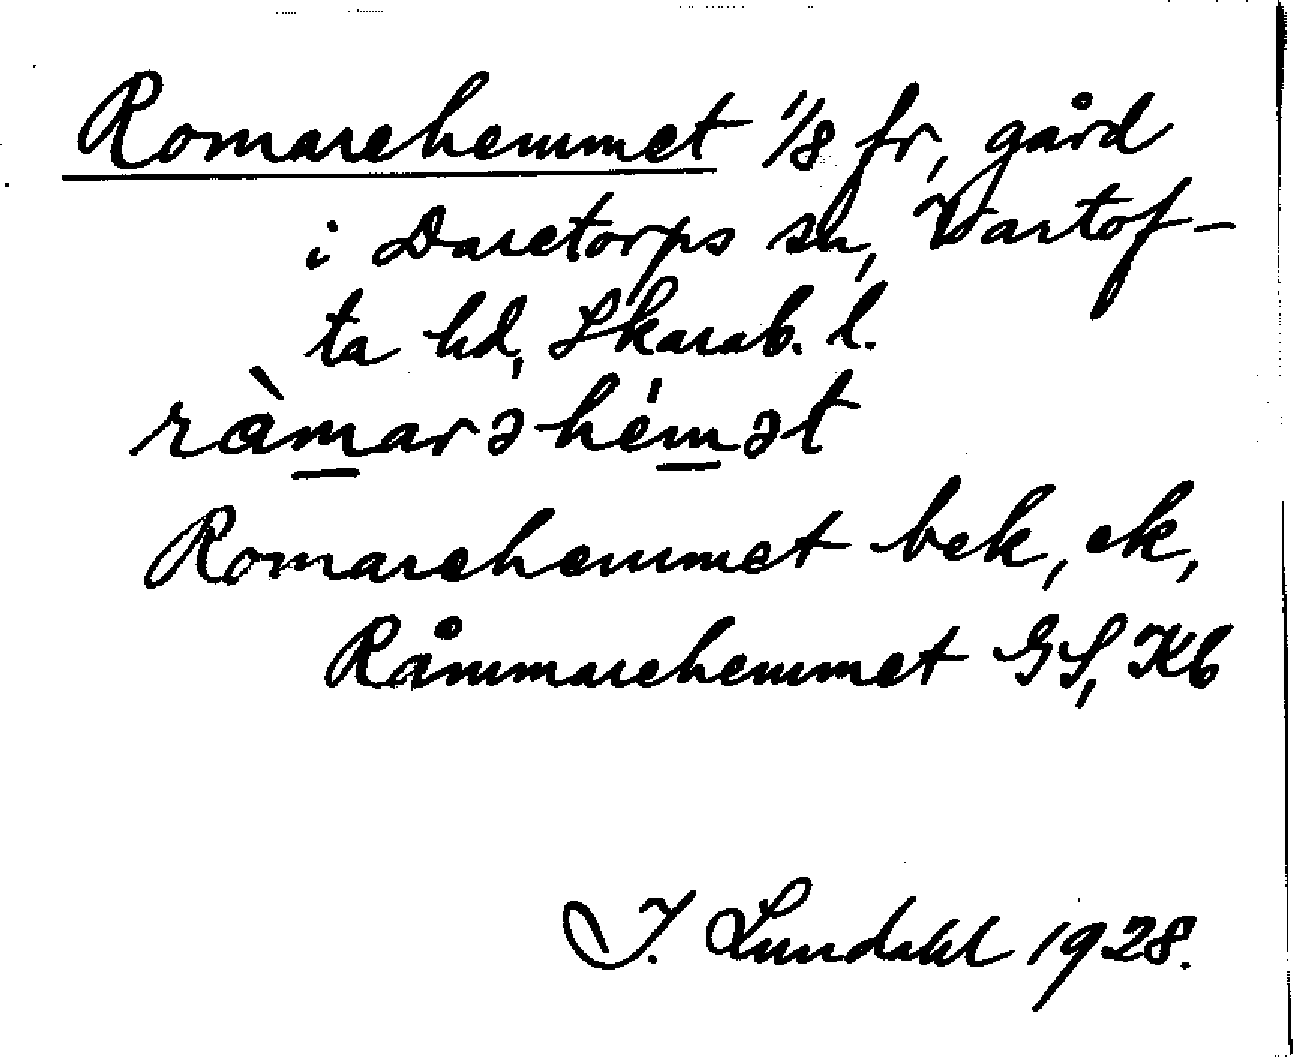 Romarehemmet 1/8 fr, gård
i Daretorps sn, Vartof-
ta hd, Skarab. l.
ràmarəhémət
Romarehemmet bek, ek,
Råmmarehemmet GS, Kb
I. Lundahl 1928.